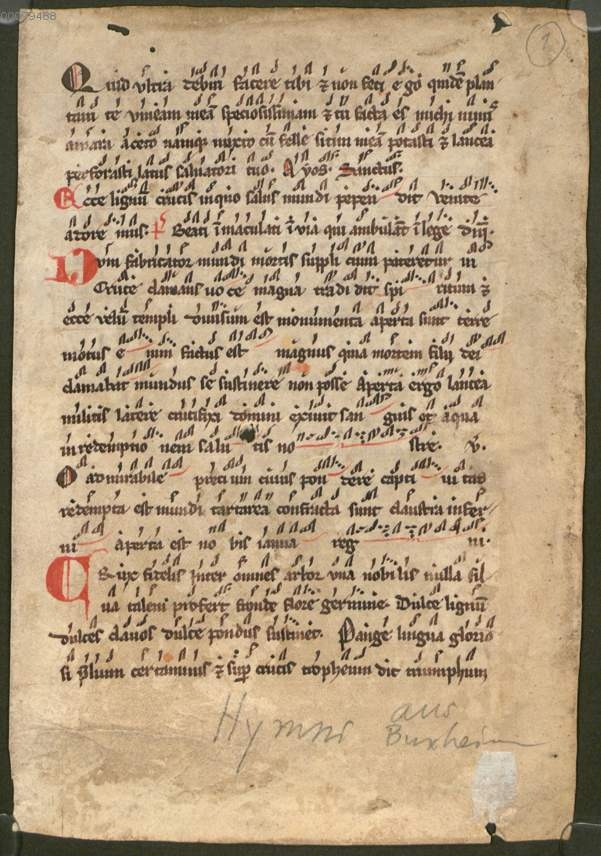 00029488
2
Quid vltra debui facere tibi ⁊ nōn feci ego quidē plan
taui te vineam meā speciosissimam ⁊ tu facta es michi nimis
amara aceto namq; mixto cū felle sitim meā potasti ⁊ lancea
perforasti latus saluatori tuo. Ayos. Sanctus.
Ecce lignū crucis in quo salus mundi pepen dit venite
adore mus. Beati īmaculati ī via qui ambulāt ī lege
Dum fabricator mundi mortis suppli cium pateretur in
Cruce clamans uo ce magna tradi dit spi ritum ⁊
ecce velū templi diuisum est monumenta aperta sunt terre
motus e nim factus est magnus quia mortem filij dei
clamabat mundus se sustinere non posse Aperta ergo lancea
militis latere crucifixi domini exiuit san guis et aqua
in redemptio nem salu tis no stre. v.
O admirabile preci um cuius pon dere capti ui tas
redempta est mundi tartarea confracta sunt claustra infer
ni aperta est no bis ianua reg ni.
Crux fidelis inter omnes arbor vna nobilis nulla sil
ua talem profert fronde flore germine. Dulce lignū
dulces clauos dulce pondus sustinet. Pange lingua glorio
si prelium certaminis ⁊ sup crucis tropheum dic triumphum
Hymni aus
Buxheim